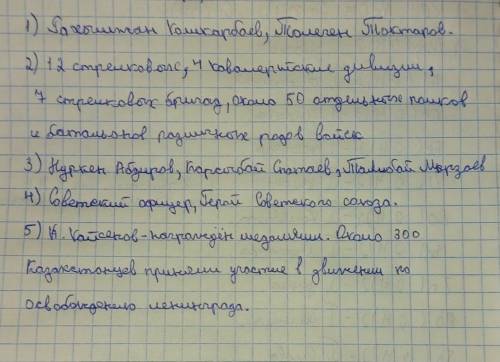 1) Рахымжан Кошкарбаев, Толеген Токтаров.
2) 12 стрелковых, 4 кавалерийские дивизии,
7 стрелковых бригад, около 50 отдельных полков
и батальонов различных родов войск
3) Нуркен Абдиров, Карсыбай Спатаев, Толюбай Мырзаев
4) Советский офицер, Герой Советского союза.
5) К. Кайсенов - награждён медалями. Около 300
Казахстанцев приняли участие в движении по
освобождению ленинграда.